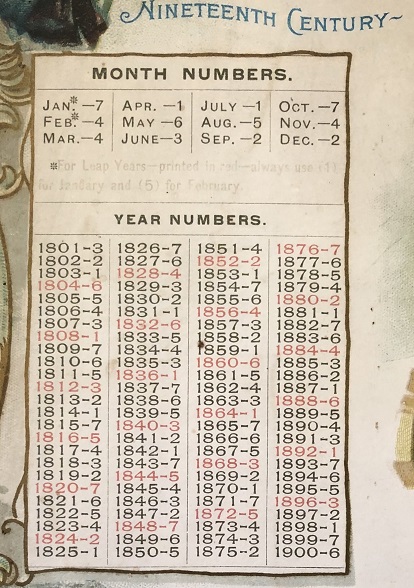 NINETEENTH CENTURY~
MONTH NUMBERS.
JAN.*–7 APR. –1 JULY –1 OCT. –7
FEB.*–4 MAY –6 AUG. –5 NOV. –4
MAR.–4 JUNE–3 SEP. –2 DEC. –2
*For Leap Years—printed in red—always use (1)
for January and (5) for February.
YEAR NUMBERS.
1801-3 1826-7 1851-4 1876-7
1802-2 1827-6 1852-2 1877-6
1803-1 1828-4 1853-1 1878-5
1804-6 1829-3 1854-7 1879-4
1805-5 1830-2 1855-6 1880-2
1806-4 1831-1 1856-4 1881-1
1807-3 1832-6 1857-3 1882-7
1808-1 1833-5 1858-2 1883-6
1809-7 1834-4 1859-1 1884-4
1810-6 1835-3 1860-6 1885-3
1811-5 1836-1 1861-5 1886-2
1812-3 1837-7 1862-4 1887-1
1813-2 1838-6 1863-3 1888-6
1814-1 1839-5 1864-1 1889-5
1815-7 1840-3 1865-7 1890-4
1816-5 1841-2 1866-6 1891-3
1817-4 1842-1 1867-5 1892-1
1818-3 1843-7 1868-3 1893-7
1819-2 1844-5 1869-2 1894-6
1820-7 1845-4 1870-1 1895-5
1821-6 1846-3 1871-7 1896-3
1822-5 1847-2 1872-5 1897-2
1823-4 1848-7 1873-4 1898-1
1824-2 1849-6 1874-3 1899-7
1825-1 1850-5 1875-2 1900-6